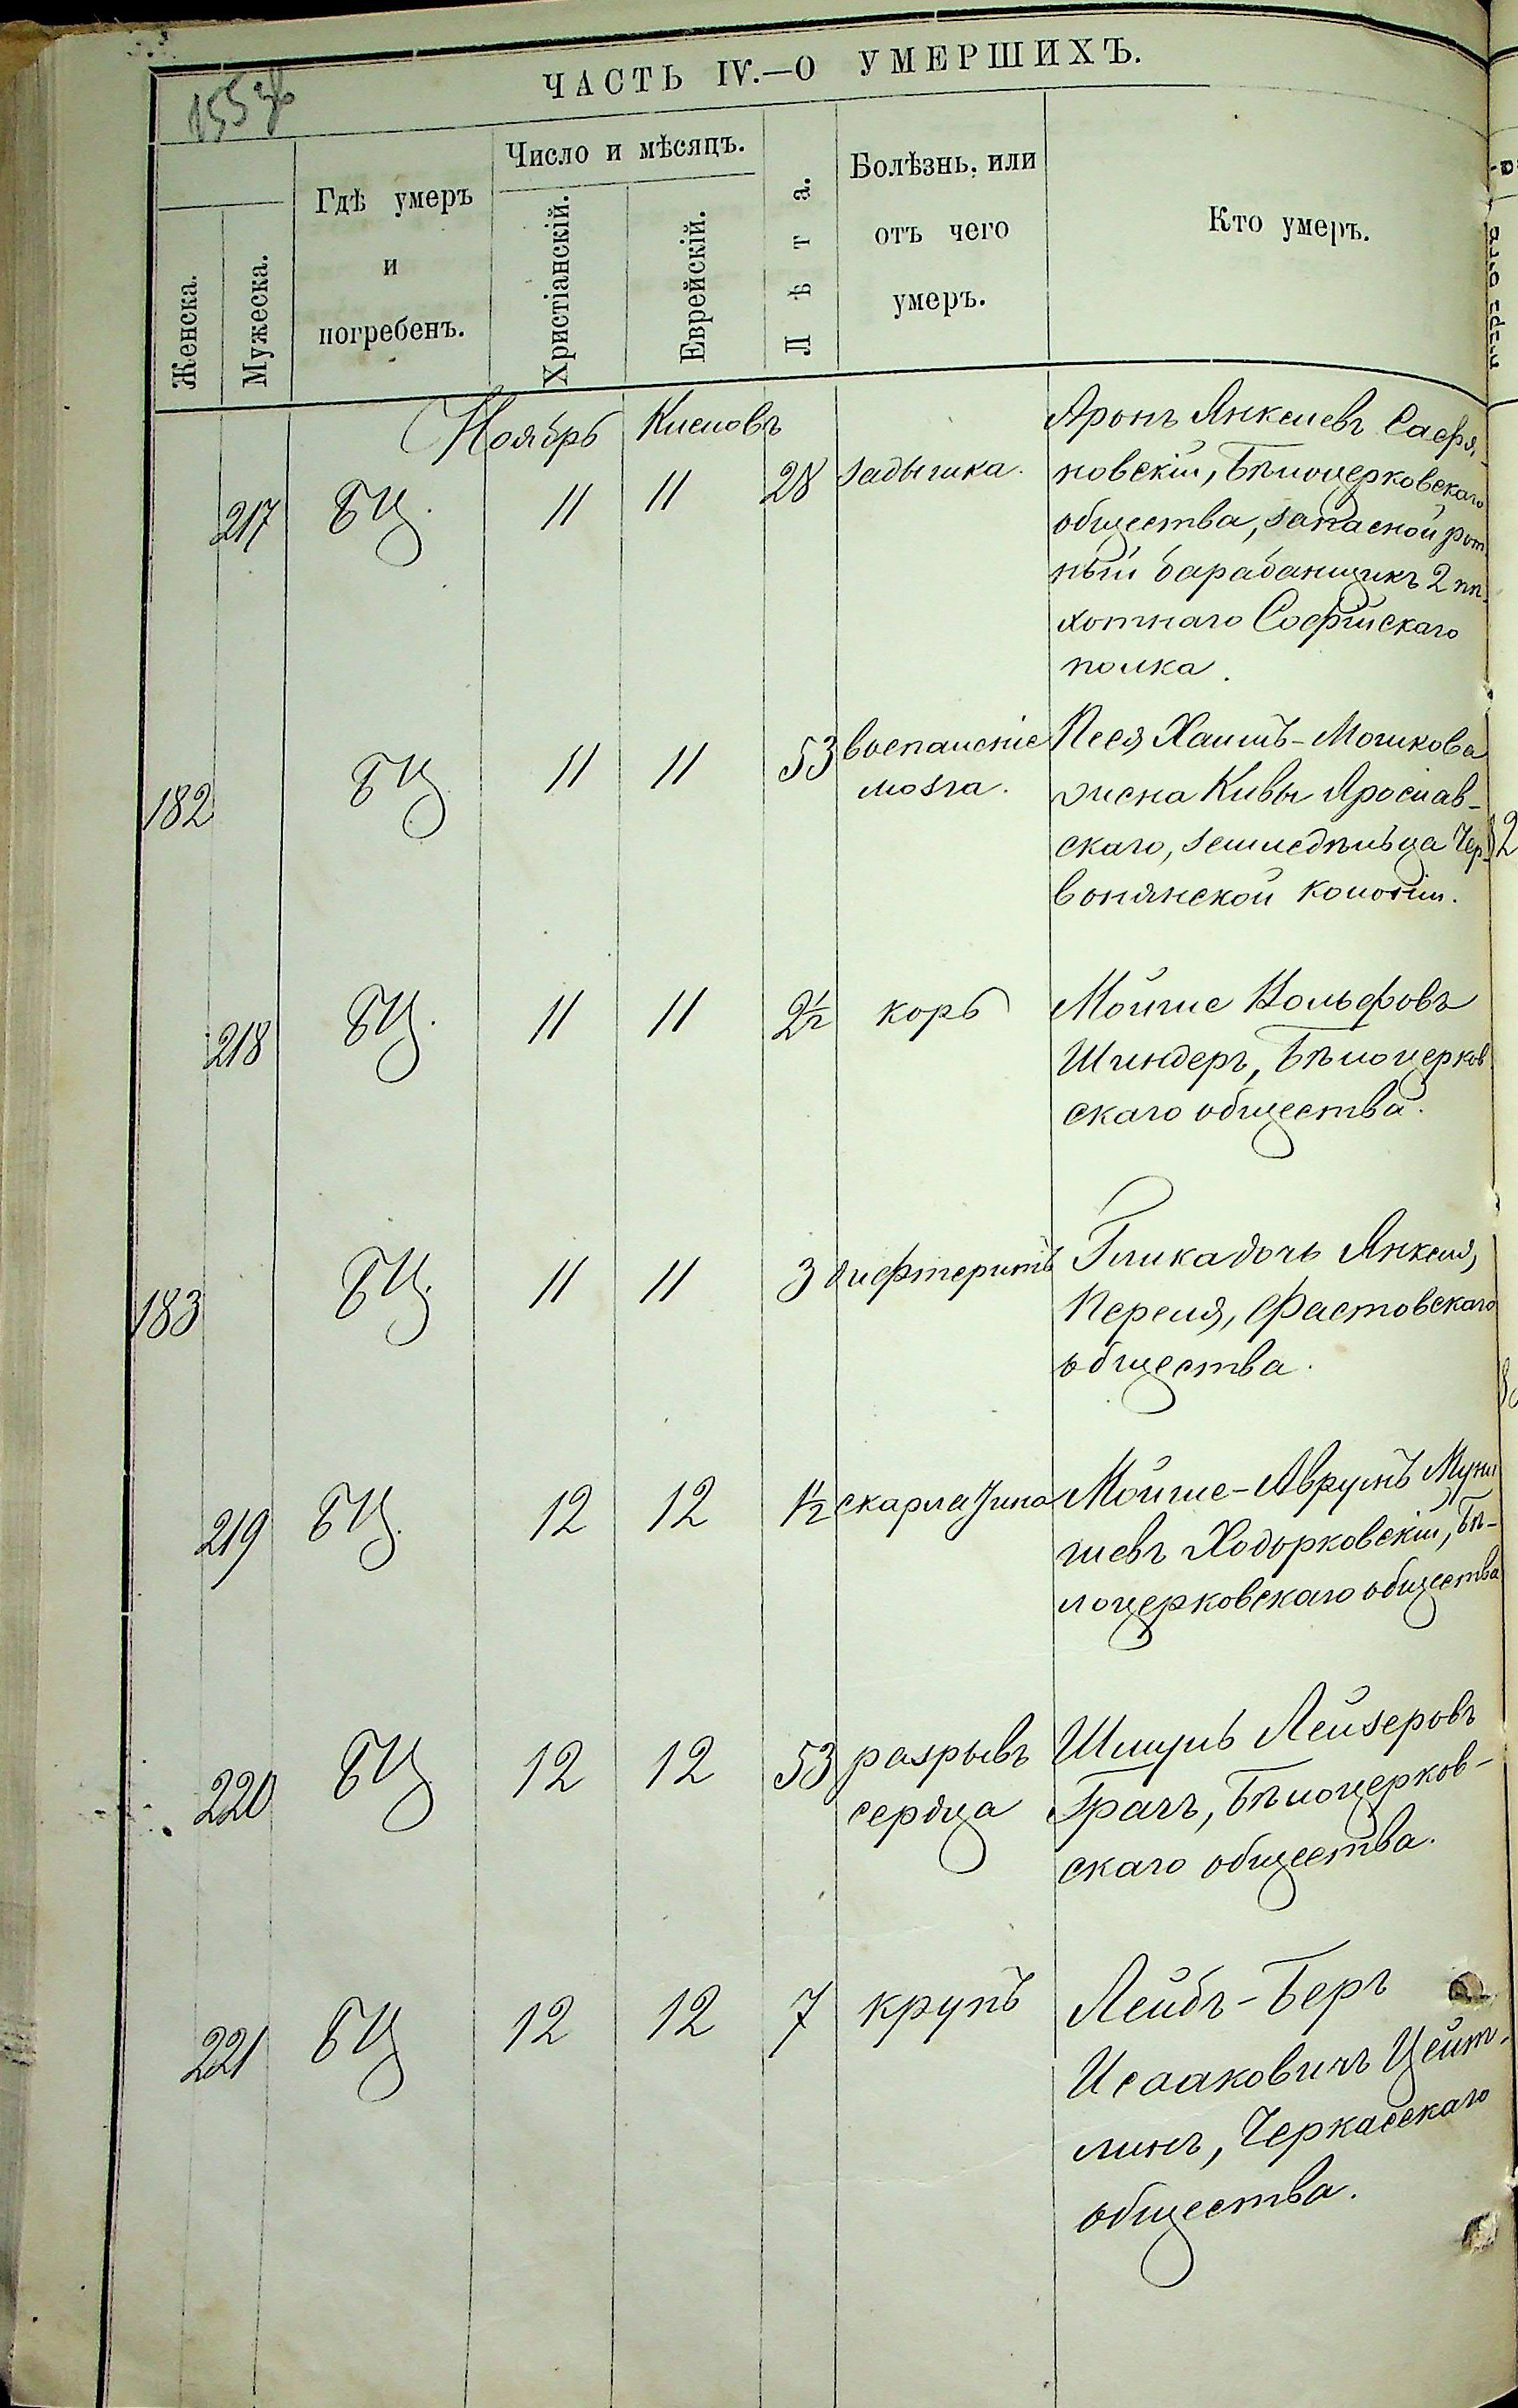 ЧАСТЬ IV.—О УМЕРШИХЪ.
Женска.
Мужеска.
Гдѣ умеръ
и
погребенъ.
Число и мѣсяцъ.
Христіанскій.
Еврейскій.
Лѣта.
Болѣзнь, или
отъ чего
умеръ.
Кто умеръ.
Ноябрь Кислевъ
217 БЦ. 11 11 28 задышка.
Аронъ Янкелевъ Сафья-
новскій, Бѣлоцерковскаго
общества, запасной рот
ный барабанщикъ 2 пѣ-
хотнаго Софійскаго
полка.
182 БЦ 11 11 53 воспаленіе
мозга.
Песя Хаимъ-Мошкова
жена Кивы Ярослав-
скаго, земледѣльца Чер-
вонянской колоніи.
218 БЦ. 11 11 2½ корь
Мойше Вольфовъ
Шиндеръ, Бѣлоцерков
скаго общества.
183 БЦ. 11 11 3 дифтеритъ
Гликадочь Янкеля,
Переля, Фастовскаго
общества.
219 БЦ. 12 12 1½ скарлатина
Мойше-Аврумъ
шевъ Ходорковскій, Бѣ-
лоцерковскаго общества
220 БЦ 12 12 53 разрывъ
сердца
Шмуль Лейзеровъ
Грачъ, Бѣлоцерков-
скаго общества.
221 БЦ 12 12 7 крупъ
Лейбъ-Беръ
Исааковичъ Цейт-
линъ, Черкасскаго
общества.